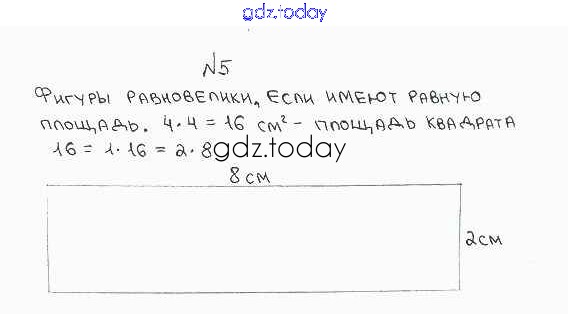 gdz.today
№5
Фигуры равновелики, если имеют равную
площадь. 4·4=16 см² - площадь квадрата
16 = 1·16 = 2·8 gdz.today
8 см
2 см